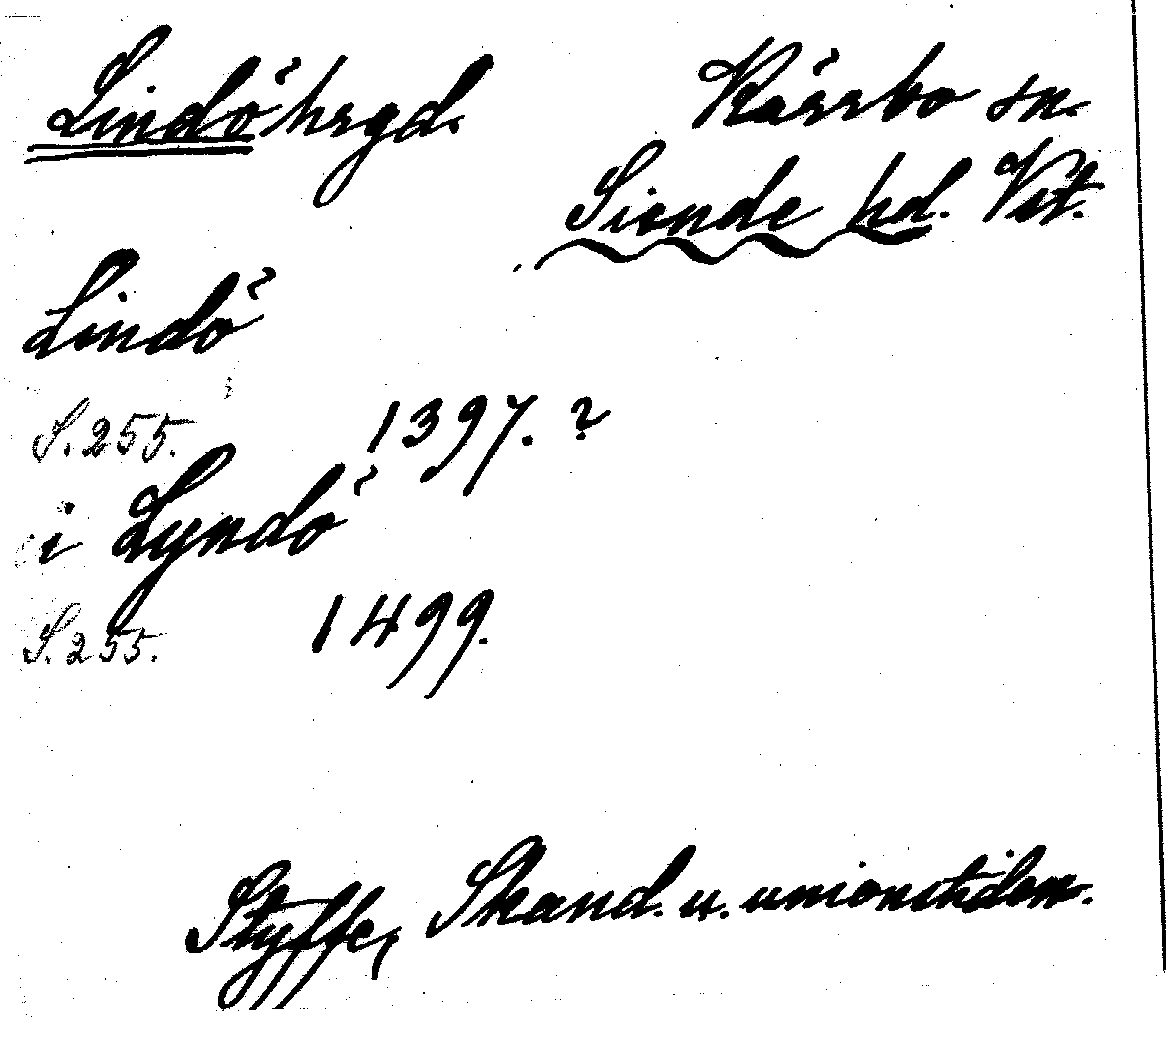 Lindö hrgd. Kärrbo sn.
Siende hd. Vst.
Lindö
S. 255. 1397. ?
i Lyndö
S. 255. 1499.
Styffe, Skand. u. unionstiden.